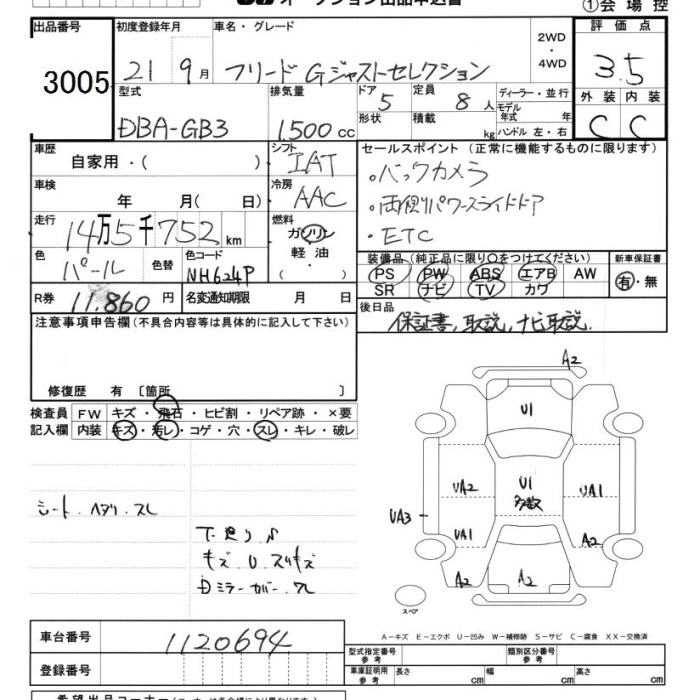 オークション出品申込書
①会場控
出品番号 初度登録年月 車名・グレード 評価点
3005 21 9月 フリード Gジャストセレクション 2WD・4WD 3.5
型式 排気量 ドア 5 定員 8人 ディーラー・並行 外装 内装
DBA-GB3 1,500 cc 形状 積載 kg モデル年式 年 ハンドル 左・右 C C
車歴 自家用・( ) シフト IAT セールスポイント(正常に機能するものに限ります)
車検 年 月( 日) 冷房 AAC ・バックカメラ
走行 14万5千752km 燃料 ガソリン・軽油・ ・両側パワースライドドア
・ETC
色 パール 色替 色コード NH624P 装備品(純正品に限り○をつけてください) 新車保証書
PS PW ABS エアB AW 有・無
SR ナビ TV カワ
R券 11,860円 名変通知期限 月 日 後日品
保証書, 取説, ナビ取説.
注意事項申告欄(不具合内容等は具体的に記入して下さい)
修復歴 有 〔箇所 〕
検査員 FW キズ・飛石・ヒビ割・リペア跡・×要
記入欄 内装 キズ・汚レ・コゲ・穴・スレ・キレ・破レ
シート.ヘタリ.スレ
下廻りサ
キズ.U.スリキズ
Dミラーカバー.ワレ
A2
U1
UA2 U1 多数 UA1
UA3
UA1 A2
A2 A2
スペア
A-キズ E-エクボ U-凹み W-補修跡 S-サビ C-腐食 XX-交換済
車台番号 1120694
登録番号
型式指定番号 参考 類別区分番号 参考
車庫証明用 参考 長さ cm 幅 cm 高さ cm